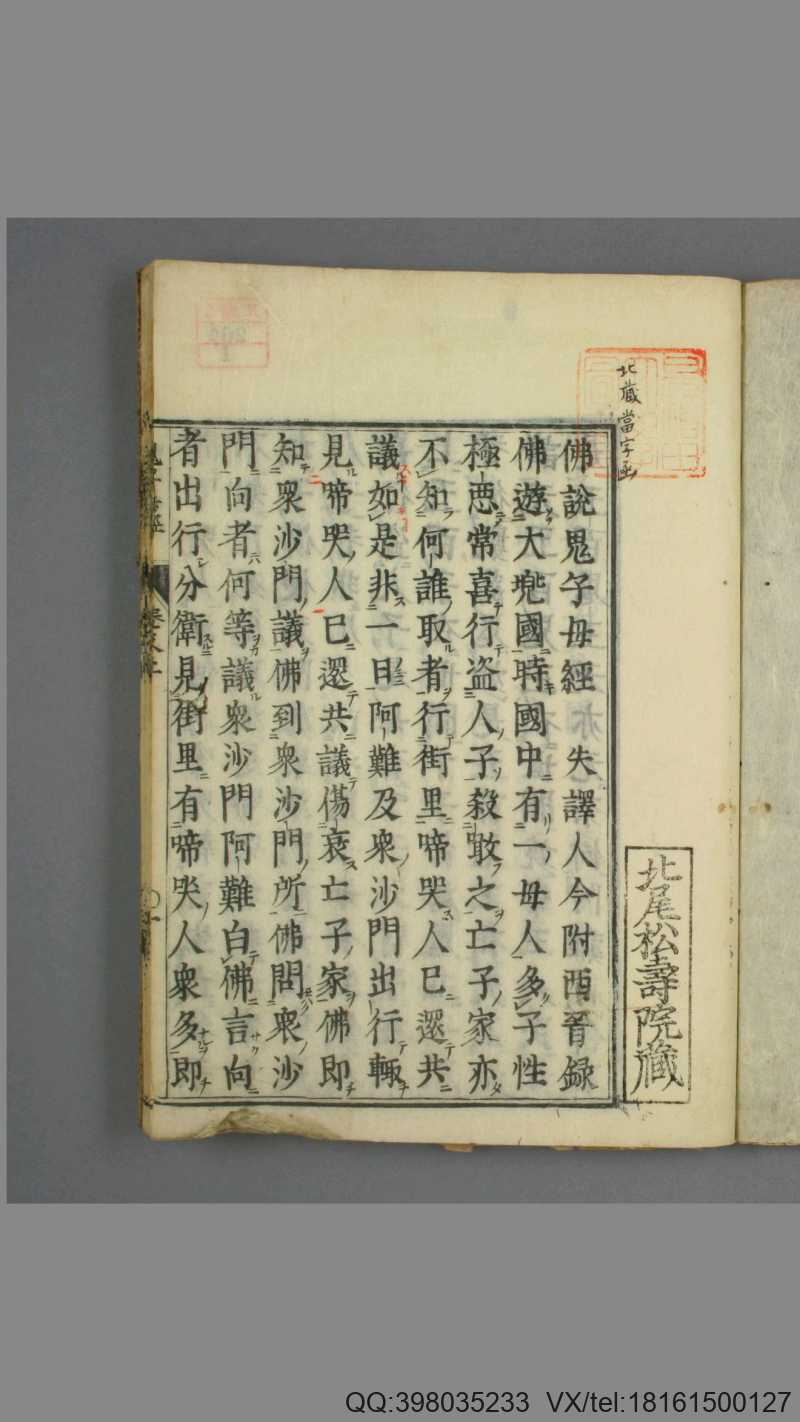 北藏當字函
北尾松壽院藏
佛說鬼子母經 失譯人今附西晉録
佛遊大兠國時國中有一母人多子性
極惡常喜行盗人子殺敢之亡子家亦
不知何誰取者行街里啼哭人已還共
議如是非一日阿難及衆沙門出行輙
見啼哭人已還共議傷哀亡子家佛即
知衆沙門議佛到衆沙門所佛問衆沙
門向者何等議衆沙門阿難白佛言向
者出行分衛見街里有啼哭人衆多即
QQ:398035233 VX/tel:18161500127